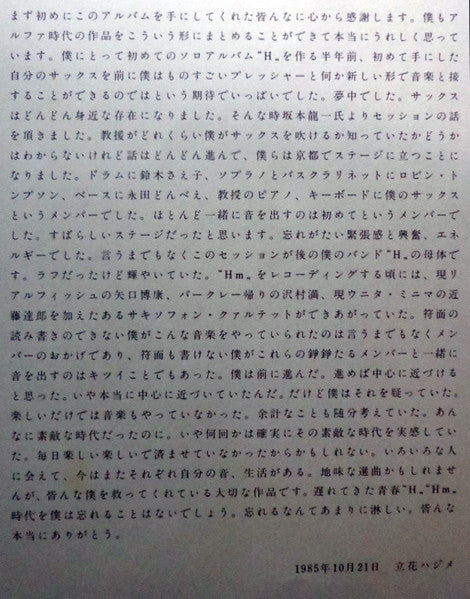 まず初めにこのアルバムを手にしてくれた皆んなに心から感謝します。僕もア
ルファ時代の作品をこういう形にまとめることができて本当にうれしく思って
います。僕にとって初めてのソロアルバム“H„を作る半年前、初めて手にした
自分のサックスを前に僕はものすごいプレッシャーと何か新しい形で音楽と接
することができるのではという期待でいっぱいでした。夢中でした。サックス
はどんどん身近な存在になりました。そんな時坂本龍一氏よりセッションの話
を頂きました。教授がどれくらい僕がサックスを吹けるか知っていたかどうか
はわからないけれど話はどんどん進んで、僕らは京都でステージに立つことに
なりました。ドラムに鈴木さえ子、ソプラノとバスクラリネットにロビン・ト
ンプソン、ベースに永田どんべえ、教授のピアノ、キーボードに僕のサックス
というメンバーでした。ほとんど一緒に音を出すのは初めてというメンバーで
した。すばらしいステージだったと思います。忘れがたい緊張感と興奮、エネ
ルギーでした。言うまでもなくこのセッションが後の僕のバンド“H„の母体で
す。ラフだったけど輝やいていた。“Hm„をレコーディングする頃には、現リ
アルフィッシュの矢口博康、バークレー帰りの沢村満、現ウニタ・ミニマの近
藤達郎を加えたあるサキソフォン・クァルテットができあがっていた。符面の
読み書きのできない僕がこんな音楽をやっていられたのは言うまでもなくメン
バーのおかげであり、符面も書けない僕がこれらの錚錚たるメンバーと一緒に
音を出すのはキツイことでもあった。僕は前に進んだ。進めば中心に近づける
と思った。いや本当に中心に近づいていたんだ。だけど僕はそれを疑っていた。
楽しいだけでは音楽もやっていなかった。余計なことも随分考えていた。あん
なに素敵な時代だったのに。いや何回かは確実にその素敵な時代を実感してい
た。毎日楽しい楽しいで済ませていなかったからかもしれない。いろいろな人
に会えて、今はまたそれぞれ自分の音、生活がある。地味な選曲かもしれませ
んが、皆んな僕を救ってくれている大切な作品です。遅れてきた青春“H„“Hm„
時代を僕は忘れることはないでしょう。忘れるなんてあまりに淋しい。皆んな
本当にありがとう。
1985年10月21日　立花ハジメ